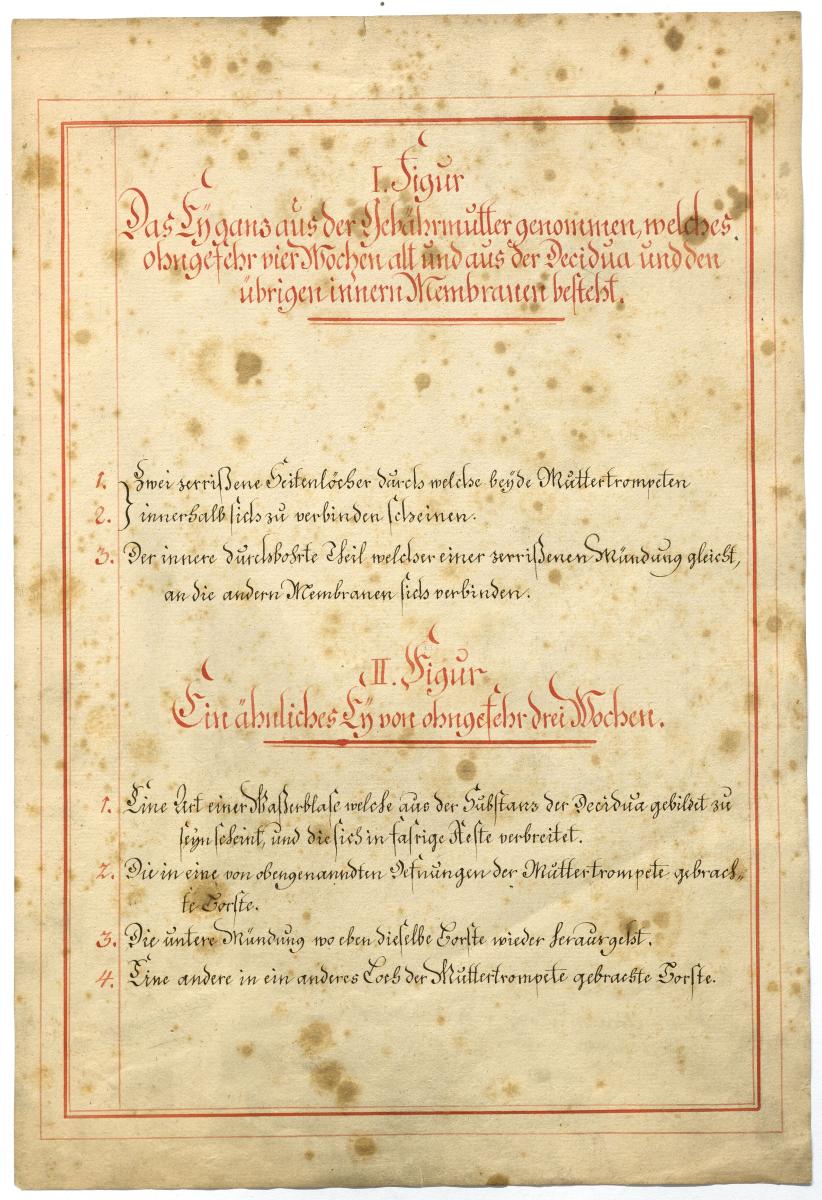 I. Figur
Das Ey ganz aus der Gebährmutter genommen, welches
ohngefehr vier Wochen alt und aus der Decidua und den
übrigen innern Membranen besteht.
1. Zwei zerrißene Seitenlöcher durch welche beyde Muttertrompeten
2. innerhalb sich zu verbinden scheinen.
3. Der innere durchbohrte Theil welcher einer zerrißenen Mündung gleicht,
an die andern Membranen sich verbinden.
II. Figur
Ein ähnliches Ey von ohngefehr drei Wochen.
1. Eine Art einer Waßerblase welche aus der Substanz der Decidua gebildet zu
seyn scheint, und die sich in fasrige Aeste verbreitet.
2. Die in eine von obengenanndten Oefnungen der Muttertrompete gebrach-
te Borste.
3. Die untere Mündung wo eben dieselbe Borste wieder herausgeht.
4. Eine andere in ein anderes Loch der Muttertrompete gebrachte Borste.